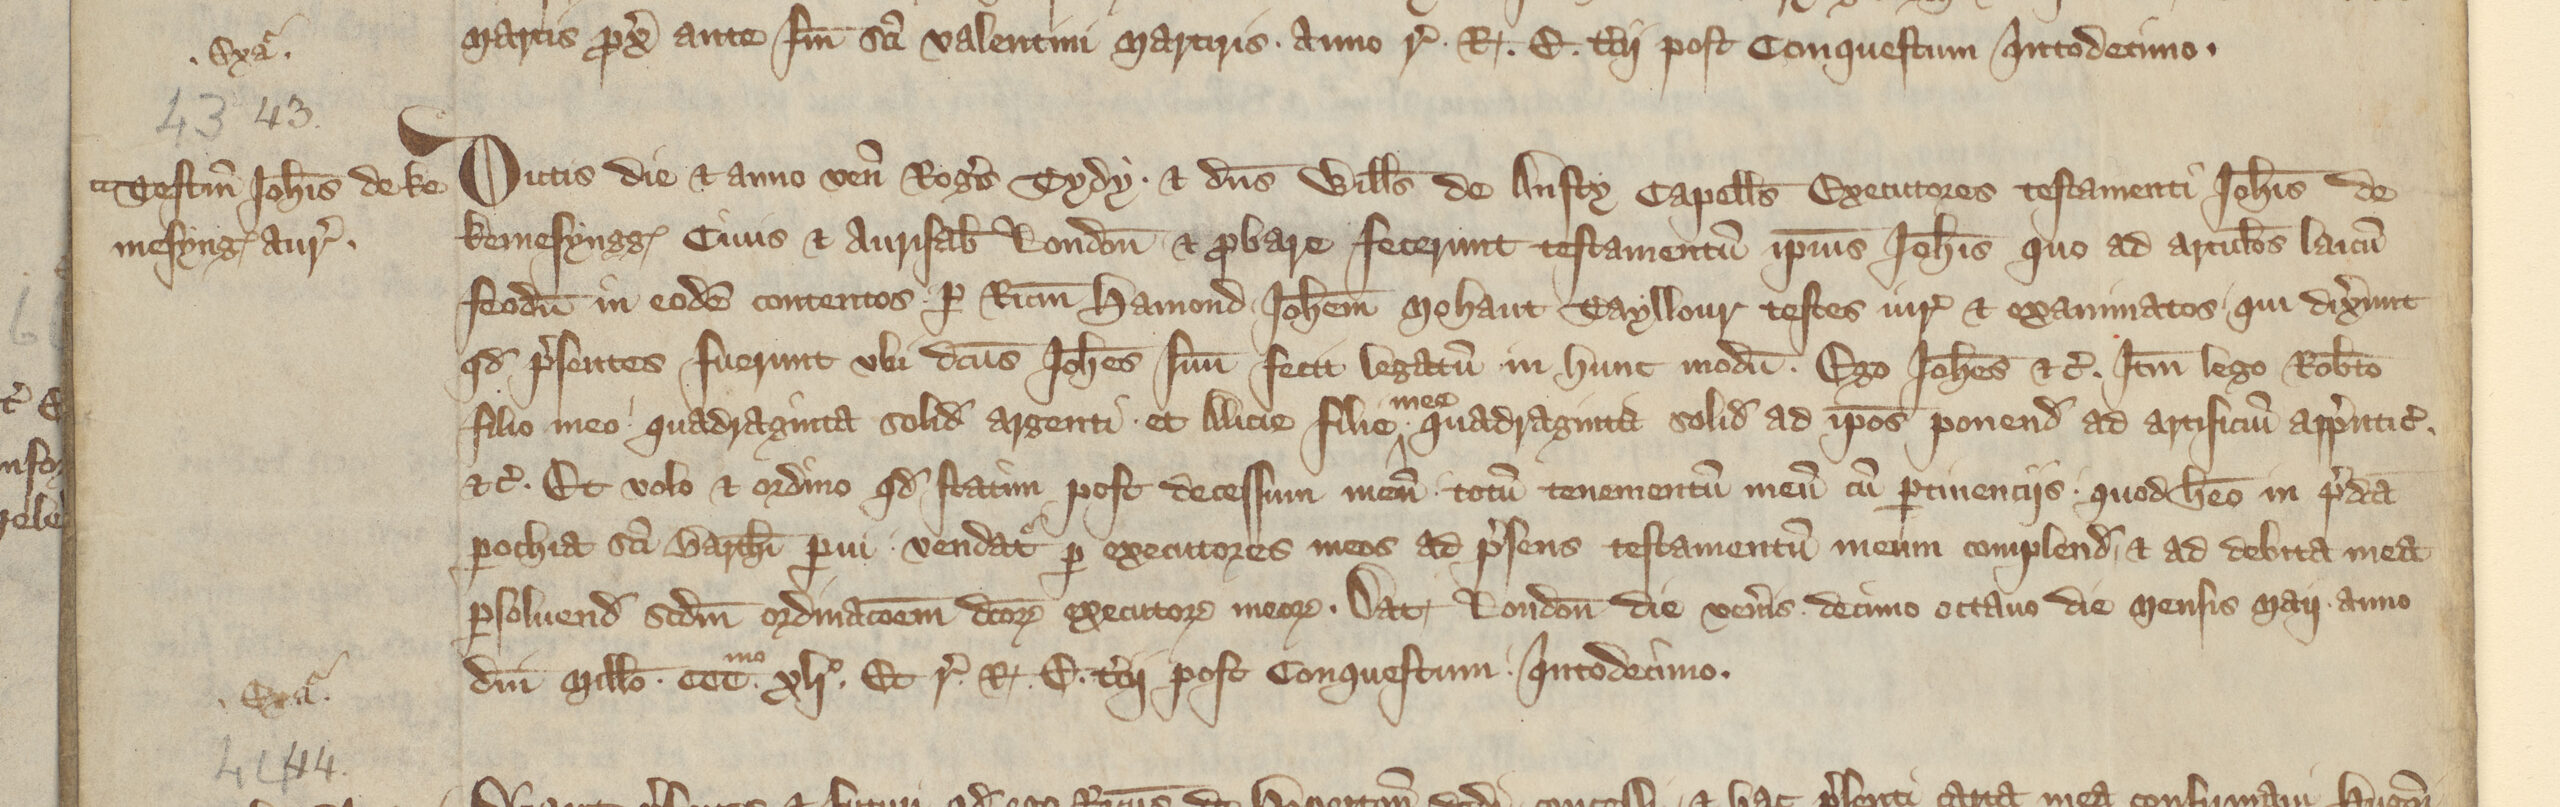 Martis prox̄ ante fm̄ sc̄i Valentini Martiris. Anno r̉. R. E. t̄cij post Conquestum Quintodecimo.
. Exaͬ.
43 43.
Testm̄ Joh̄is de ke
mesyngꝭ aur̉.
Dictis die ⁊ anno ven̄ Rog̉s Tydy. ⁊ dn̄s Will̄s de Ansty Capell̄s Executores testamenti Joh̄is de
kemesynggꝭ Ciuis ⁊ Aurifab̄ London̄ ⁊ ꝓbare fecerunt testamentū ip̄ius Joh̄is quo ad artic̄los laicū
feodū in eodē contentos. ꝑ Ric̄m Hamond Joh̄em Mohaut Tayllour testes iur̉ ⁊ examinatos qui dix̉unt
qd̄ p̉sentes fuerunt vbi dc̄us Joh̄es suū fecit legatū in hunc modū. Ego Joh̄es ⁊c̉. Itm̄ lego Rob̄to
filio meo quadraginta solid̄ argenti. et Alicie filie mee quadraginta solid̄ ad ip̄os ponend̄ ad artificiū app̉ntic̉.
⁊c̉. Et volo ⁊ ordino qd̄ statim post decessum meū. totū tenementū meū cū ꝑtinencijs. quod h̄eo in p̉dc̄a
ꝑochia sc̄i Barth̄i ꝑui. vendatͬ ꝑ executores meos ad p̉sens testamentū meum complend̄ ⁊ ad debita mea
ꝑsoluend̄ scd̄m ordinac̄oem dc̄oꝝ executoꝝ meoꝝ. Dat̉ London̄ die ven̉is. decimo octauo die Mensis Maij. anno
dn̄i Mill̄o. CCC̄. mo xlj°. Et r̉. R. E. t̄cij post Conquestum. Quintodecimo.
. Exaͬ.
44 44.